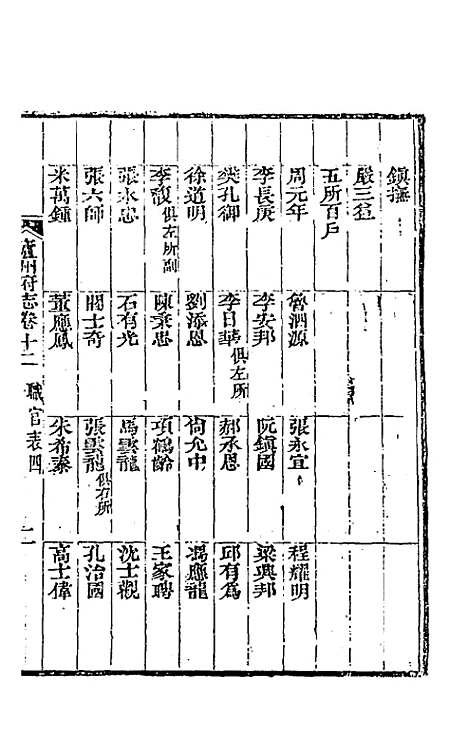 鎮撫
嚴三益
五所百戶
周元年 魯泗源 張永宜 程耀明
李長庚 李安邦 阮鎮國 梁興邦
樊孔御 李日華俱左所 郝承恩 邱有為
徐道明 劉添恩 尚允中 馮應龍
李馥俱左所副 陳秉忠 項鶴齡 王家聘
張永忠 石有光 馬雲龍 沈士觀
張六師 閻士奇 張雲龍俱右所 孔治國
米萬鍾 董應鳳 朱希泰 高士偉
廬州府志卷十二 職官表四